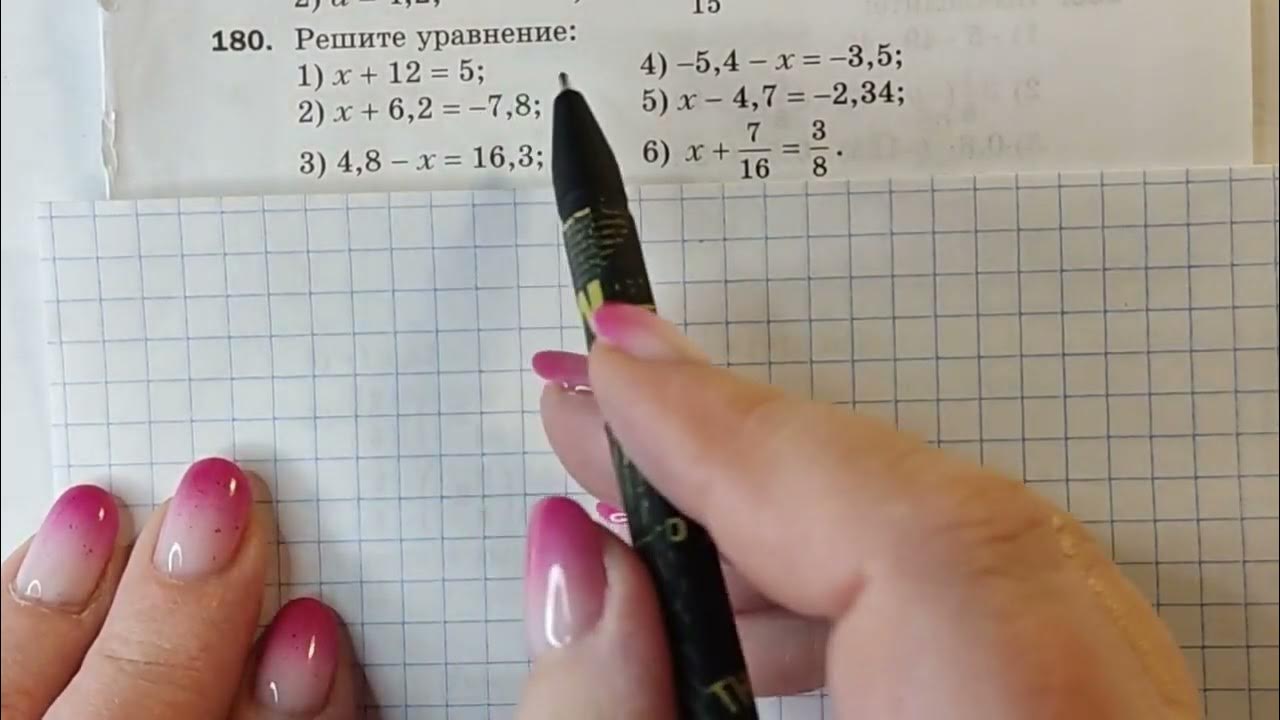 15
180. Решите уравнение:
1) x + 12 = 5;
2) x + 6,2 = –7,8;
3) 4,8 – x = 16,3;
4) –5,4 – x = –3,5;
5) x – 4,7 = –2,34;
6) x + 7/16 = 3/8.